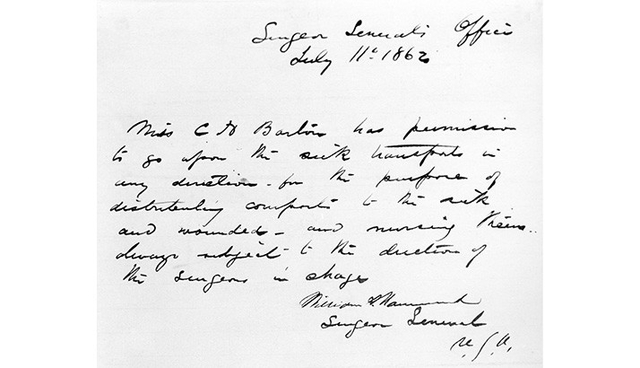 Surgeon General's Office
July 11th 1862
Miss C H Barton has permission
to go upon the sick transports in
any direction - for the purpose of
distributing comforts to the sick
and wounded - and nursing them -
always subject to the direction of
the surgeon in charge
William A Hammond
Surgeon General
U.S.A.